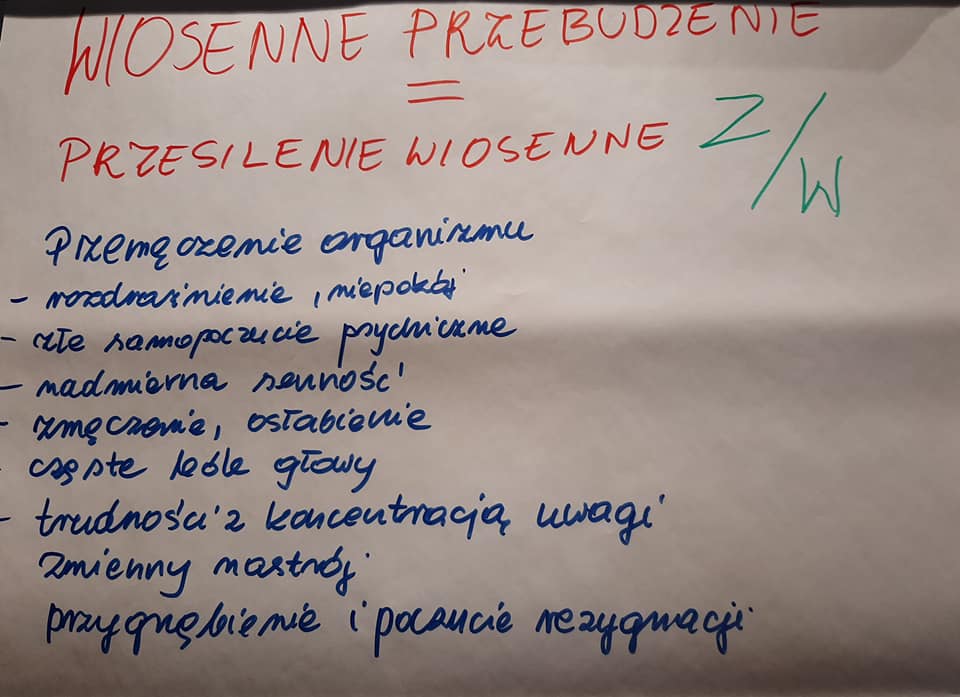 WIOSENNE PRZEBUDZENIE
=
PRZESILENIE WIOSENNE Z/W
Przemęczenie organizmu
- rozdrażnienie, niepokój
- złe samopoczucie psychiczne
- nadmierna senność
- zmęczenie, osłabienie
- częste bóle głowy
- trudności z koncentracją uwagi
Zmienny nastrój
przygnębienie i poczucie rezygnacji